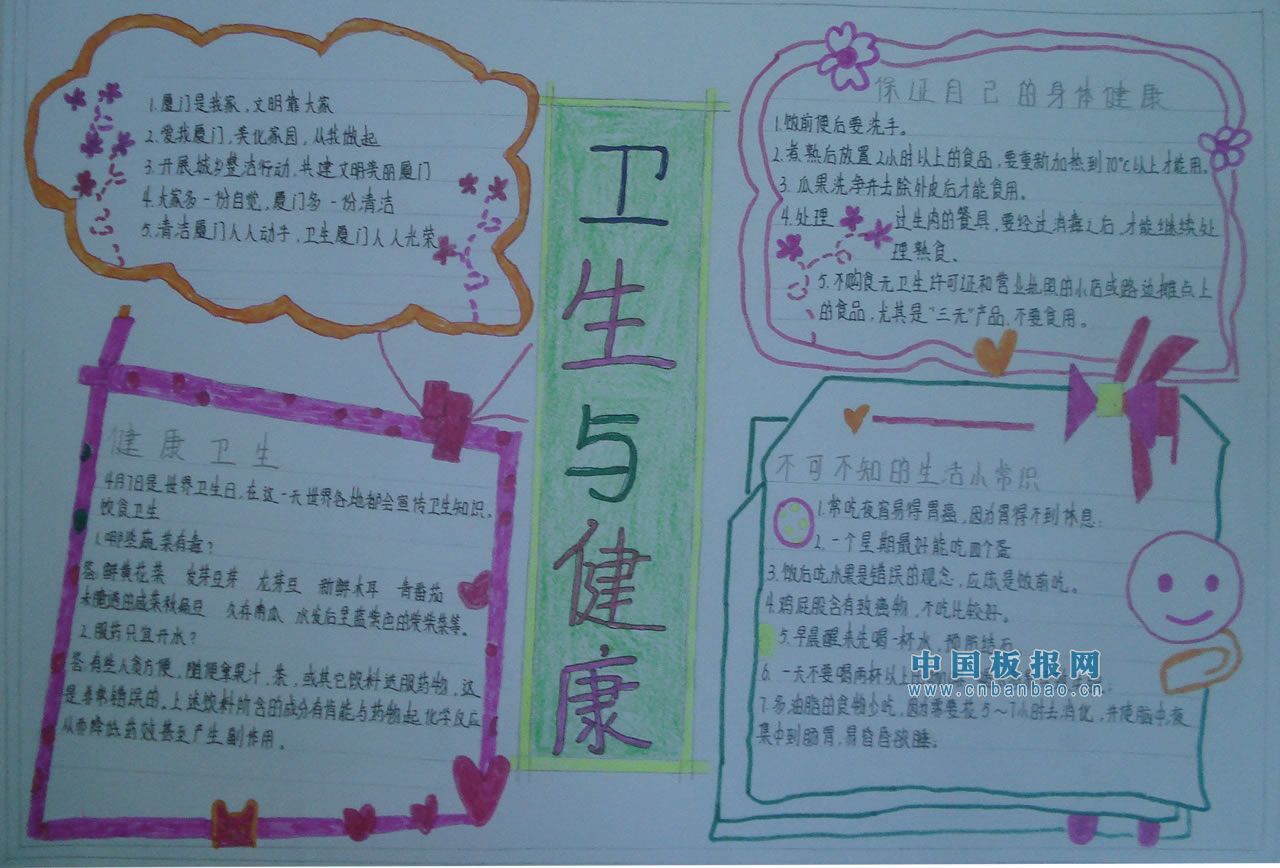 1.厦门是我家,文明靠大家
2.爱我厦门,美化家园,从我做起
3.开展城乡整洁行动,共建文明美丽厦门
4.大家多一份自觉,厦门多一份清洁
5.清洁厦门人人动手,卫生厦门人人光荣
健康卫生
4月7日是世界卫生日,在这一天世界各地都会宣传卫生知识。
饮食卫生
1.哪些蔬菜有毒?
答:鲜黄花菜 发芽豆芽 龙芽豆 新鲜木耳 青番茄
未腌透的咸菜秋扁豆 久存南瓜 水发后呈蓝紫色的紫菜等。
2.服药只宜开水?
答:有些人贪方便,随便拿果汁,茶,或其它饮料送服药物,这
是非常错误的。上述饮料所含的成分有肯能与药物起化学反应
从而降低药效甚至产生副作用。
卫生与健康
保证自己的身体健康
1.饭前便后要洗手。
2.煮熟后放置2小时以上的食品,要重新加热到70℃以上才能用。
3.瓜果洗净并去除外皮后才能食用。
4.处理 过生肉的餐具,要经过消毒之后,才能继续处
理熟食、
5.不购食无卫生许可证和营业执照的小店或路边摊点上
的食品,尤其是“三无”产品,不要食用。
不可不知的生活小常识
1.常吃夜宵易得胃癌,因为胃得不到休息;
2.一个星期最好能吃四个蛋
3.饭后吃水果是错误的观念,应该是饭前吃。
4.鸡屁股含有致癌物,不吃比较好。
5.早晨醒来先喝一杯水,预防结石
6.一天不要喝两杯以上的
7.多油脂的食物少吃,因为需要花5~7小时去消化,并使脑中夜
集中到肠胃,易昏昏欲睡。
中国板报网
www.cnbanbao.cn